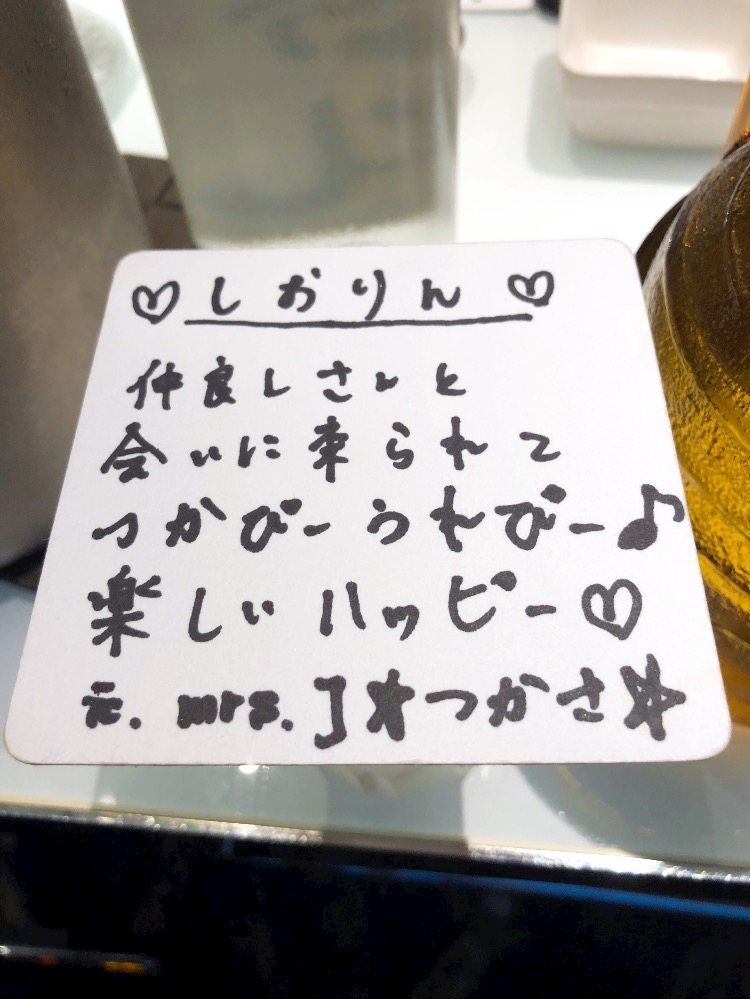 ♡しおりん♡
仲良しさんと
会いに来られて
つかびーうれびー♪
楽しいハッピー♡
元. mrs. J★つかさ★